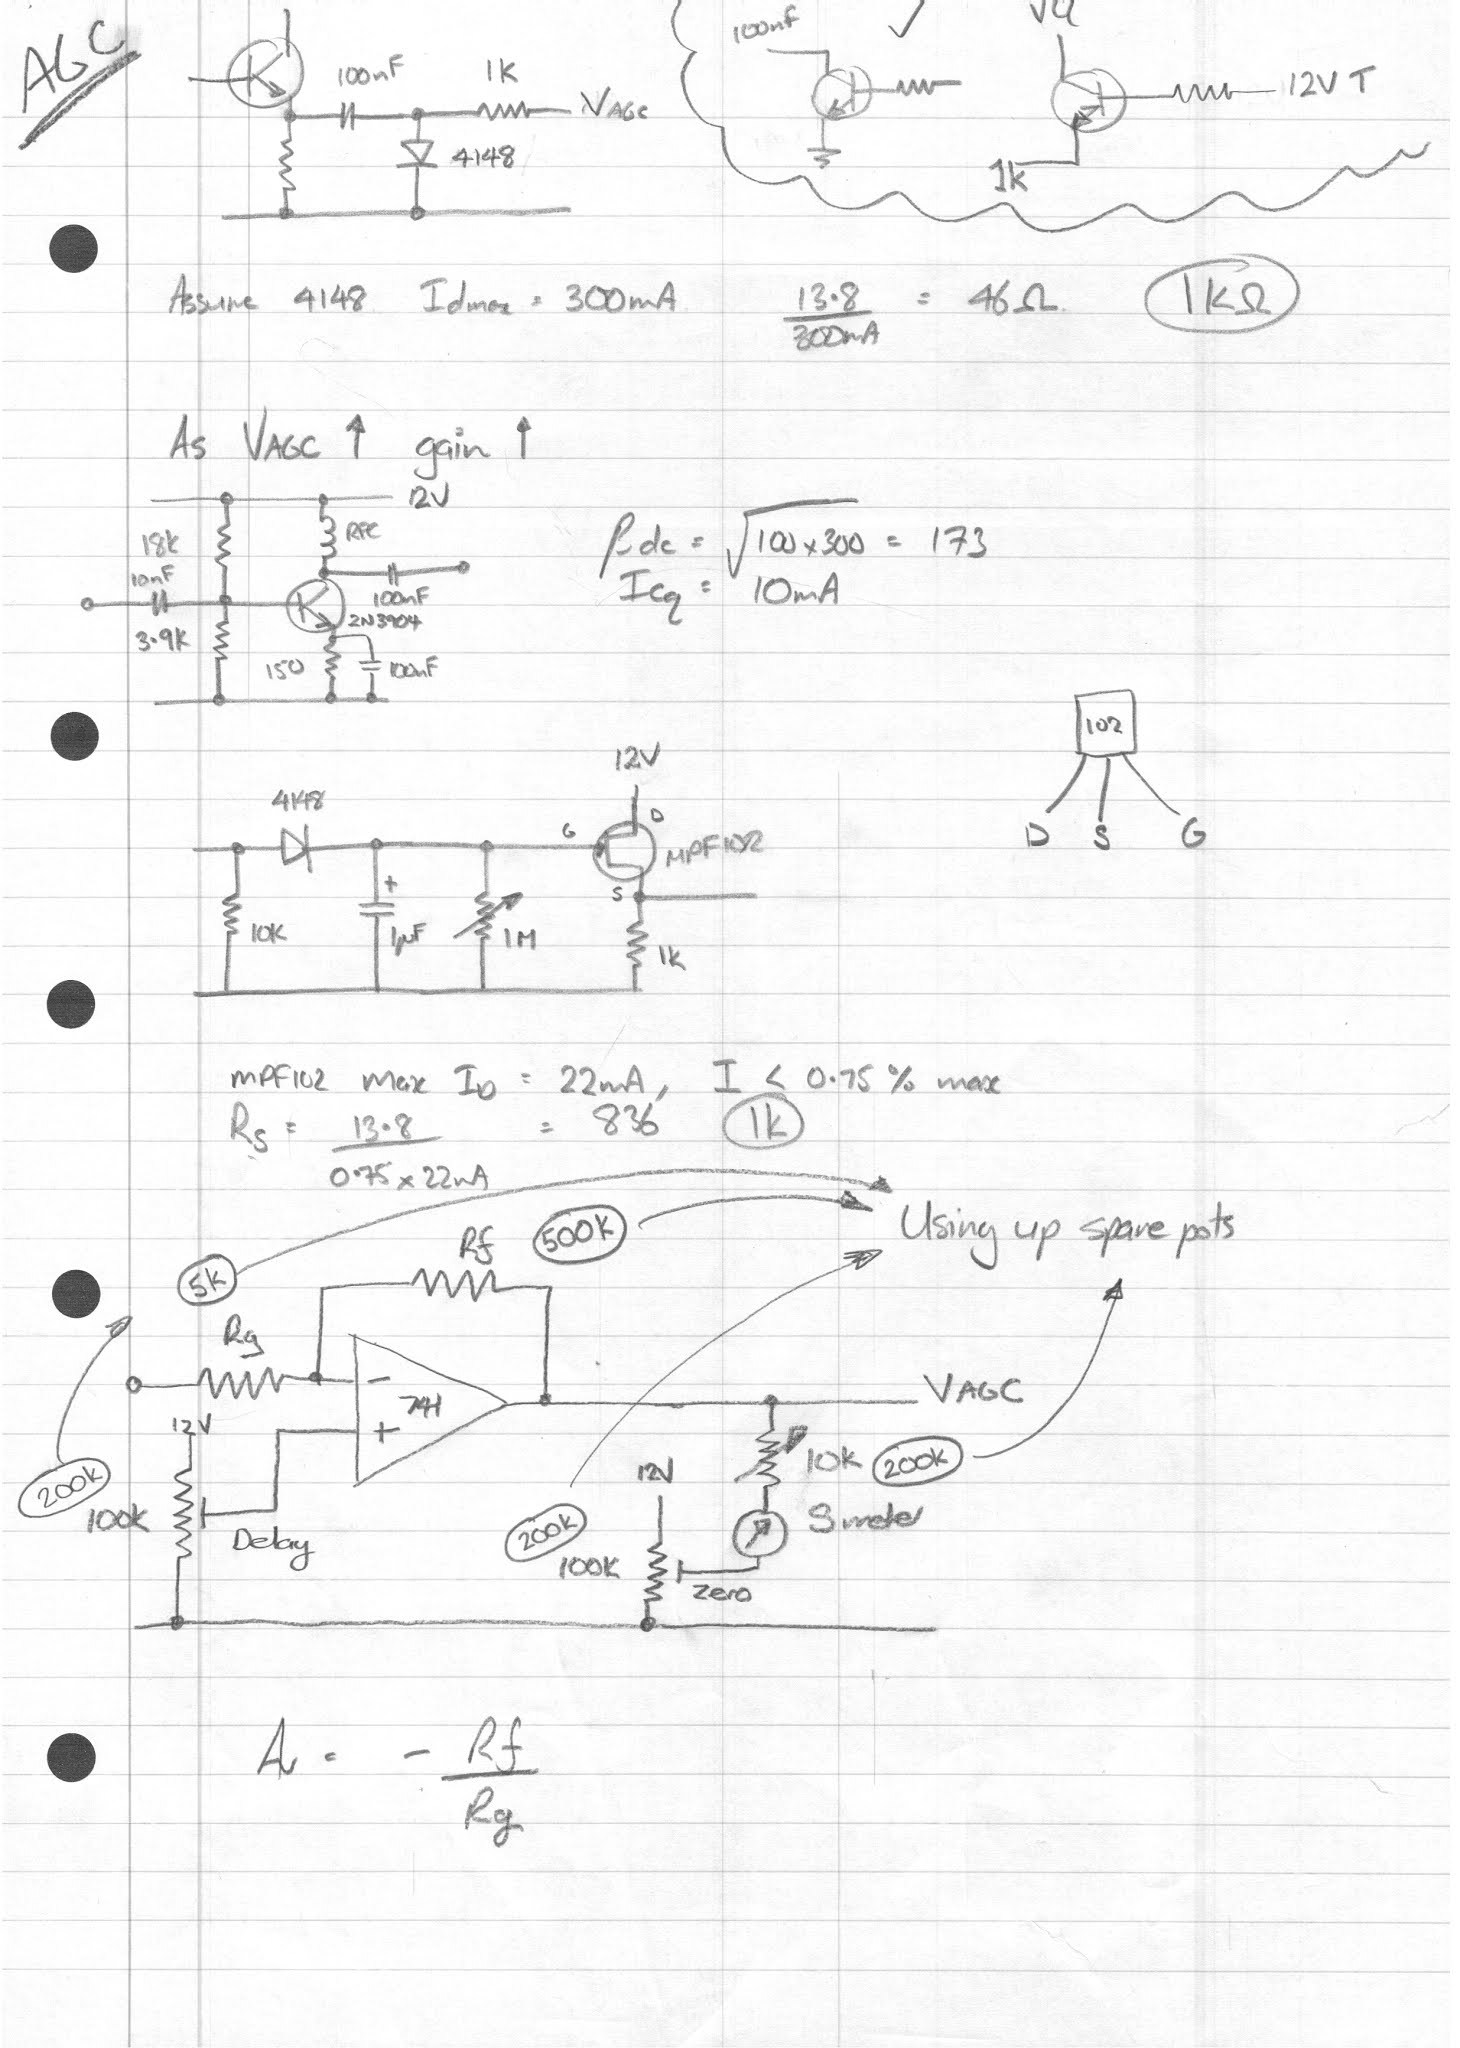 AGC
100nF
1K
VAGC
4148
100nF
12V T
1k
Assume 4148 Idmax = 300mA 13.8 / 300mA = 46Ω 1kΩ
As VAGC ↑ gain ↑
12V
18k
RFC
10nF
100nF
2N3904
3.9k
150
100nF
βdc = √100 x 300 = 173
Icq = 10mA
102
D S G
12V
4148
G
D
MPF102
S
10k
+
1µF
1M
1k
MPF102 max ID = 22mA, I < 0.75 % max
Rs = 13.8 / 0.75 x 22mA = 836 1k
Using up spare pots
Rf
500k
5k
Rg
-
741
+
VAGC
12V
200k
100k
Delay
12V
200k
100k
Zero
10k
200k
S meter
A = - Rf / Rg